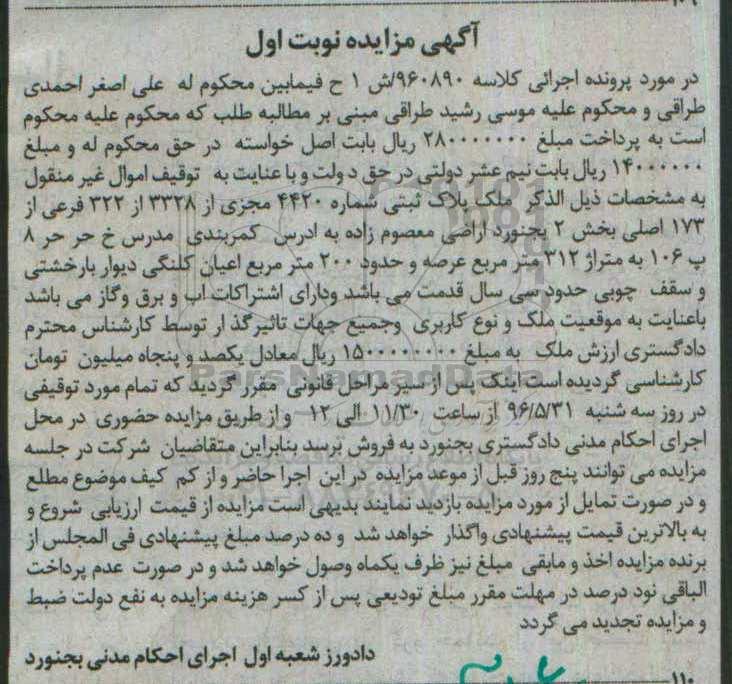 آگهی مزایده نوبت اول
در مورد پرونده اجرائی کلاسه ۹۶۰۸۹۰/ش ۱ ح فیمابین محکوم له علی اصغر احمدی
طراقی و محکوم علیه موسی رشید طراقی مبنی بر مطالبه طلب که محکوم علیه محکوم
است به پرداخت مبلغ ۲۸۰۰۰۰۰۰۰ ریال بابت اصل خواسته در حق محکوم له و مبلغ
۱۴۰۰۰۰۰۰ ریال بابت نیم عشر دولتی در حق دولت و با عنایت به توقیف اموال غیر منقول
به مشخصات ذیل الذکر ملک پلاک ثبتی شماره ۴۴۲۰ مجزی از ۳۳۲۸ از ۳۲۲ فرعی از
۱۷۳ اصلی بخش ۲ بجنورد اراضی معصوم زاده به ادرس کمربندی مدرس خ حر حر ۸
پ ۱۰۶ به متراژ ۳۱۲ متر مربع عرصه و حدود ۲۰۰ متر مربع اعیان کلنگی دیوار بارخشتی
و سقف چوبی حدود سی سال قدمت می باشد ودارای اشتراکات اب و برق وگاز می باشد
باعنایت به موقعیت ملک و نوع کاربری وجمیع جهات تاثیرگذار توسط کارشناس محترم
دادگستری ارزش ملک به مبلغ ۱۵۰۰۰۰۰۰۰۰ ریال معادل یکصد و پنجاه میلیون تومان
کارشناسی گردیده است اینک پس از سیر مراحل قانونی مقرر گردید که تمام مورد توقیفی
در روز سه شنبه ۹۶/۵/۳۱ از ساعت ۱۱/۳۰ الی ۱۲ و از طریق مزایده حضوری در محل
اجرای احکام مدنی دادگستری بجنورد به فروش برسد بنابراین متقاضیان شرکت در جلسه
مزایده می توانند پنج روز قبل از موعد مزایده در این اجرا حاضر و از کم کیف موضوع مطلع
و در صورت تمایل از مورد مزایده بازدید نمایند بدیهی است مزایده از قیمت ارزیابی شروع و
به بالاترین قیمت پیشنهادی واگذار خواهد شد و ده درصد مبلغ پیشنهادی فی المجلس از
برنده مزایده اخذ و مابقی مبلغ نیز ظرف یکماه وصول خواهد شد و در صورت عدم پرداخت
الباقی نود درصد در مهلت مقرر مبلغ تودیعی پس از کسر هزینه مزایده به نفع دولت ضبط
و مزایده تجدید می گردد
دادورز شعبه اول اجرای احکام مدنی بجنورد
۱۱۰
ParsNamadData